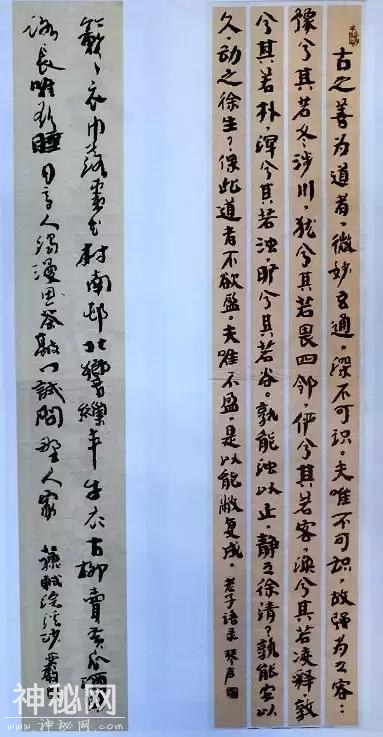 古之善为道者，微妙玄通，深不可识。夫唯不可识，故强为之容：
豫兮其若冬涉川，犹兮其若畏四邻，俨兮其若客，涣兮其若凌释，敦
兮其若朴，浑兮其若浊，旷兮其若谷。孰能浊以止，静之徐清？孰能安以
久，动之徐生？保此道者不欲盈。夫唯不盈，是以能敝复成。老子语录 琴声
簌〻衣巾落枣花村南邨北響繰车牛衣古柳賣黄瓜酒困
路长唯欲睡日高人渴漫思茶敲门試問野人家 蘇軾浣溪沙
神秘网